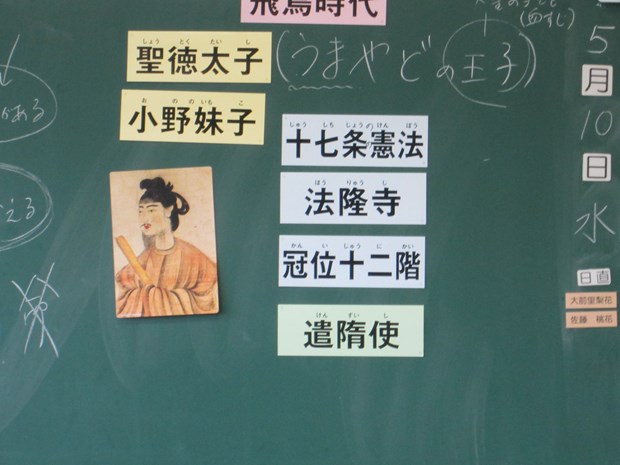 飛鳥時代
聖徳太子
しょう とく たい し
(うまやどの王子)
小野妹子
お の の いも こ
十七条憲法
じゅう しち じょう の けん ぽう
法隆寺
ほう りゅう じ
冠位十二階
かん い じゅう に かい
遣隋使
けん ずい し
5
月
10
日
水
日直
大前里梨花
佐藤 桃花
ある
える